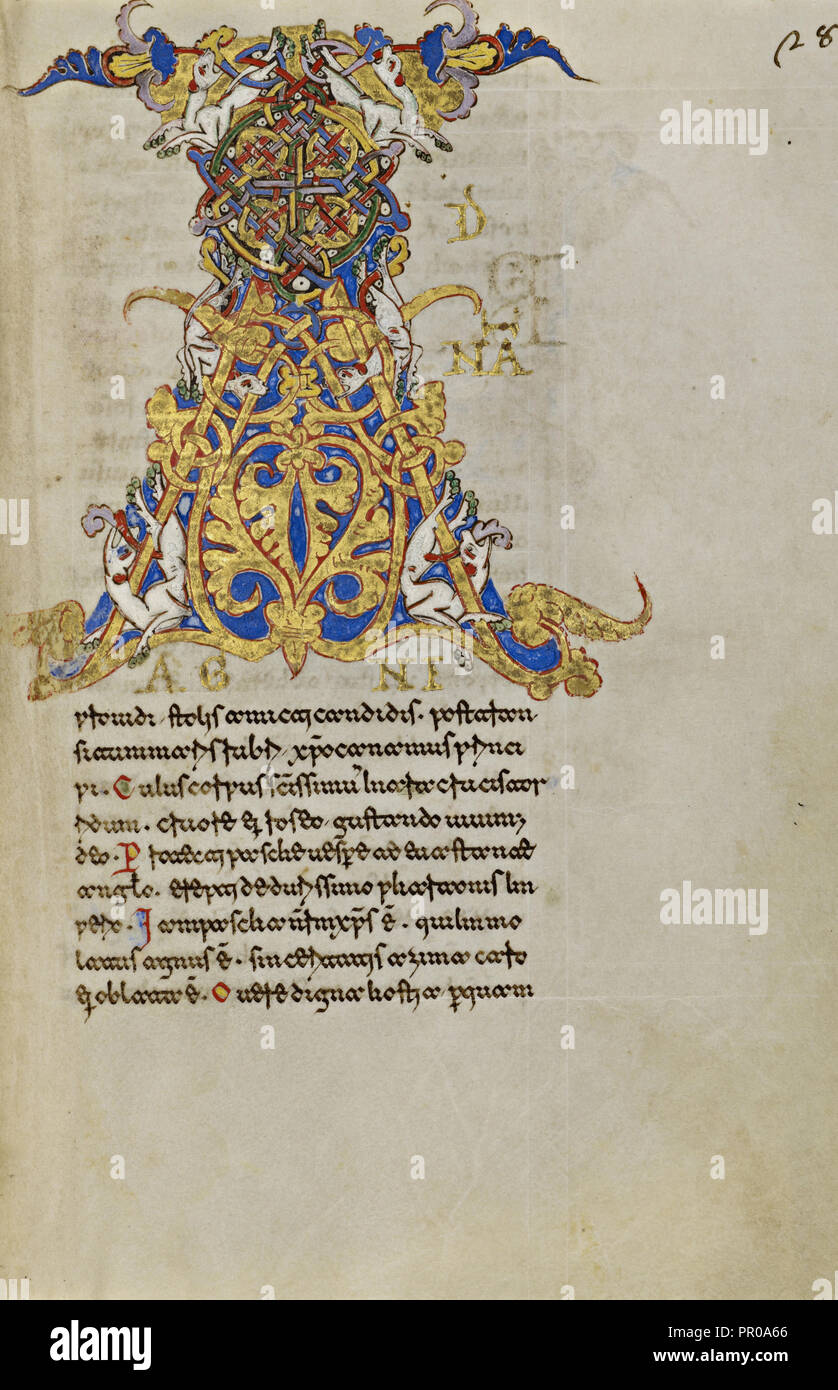 28
D
CE
NA
A. G NI
prouidi. stolis amicti candidis. post tran
situm maris rubri. xpo canamus princi
pi. Cuius corpus scissimu In ara crucis tor
ridum. cruore ei roseo. gustando uiuim;
deo. Protecti pasche uespere ad euastante
anglo. erepti de durissimo pharaonis im
perio. Iam pascha nrm xps e. qui immo
latus agnus e. sinceritatis azima caro
ei oblata e. O uere digna hostia. p quam
alamy
Image ID: PR0A66
www.alamy.com